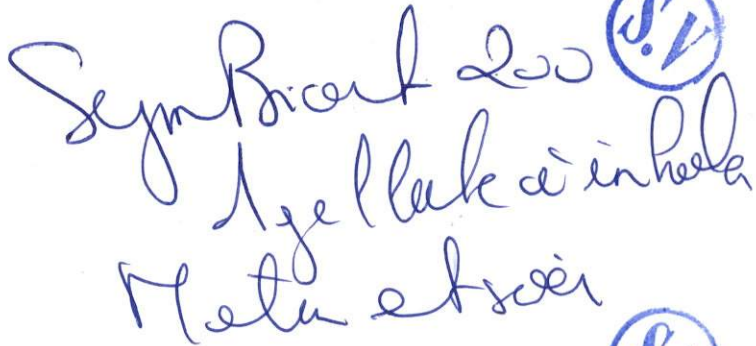 SymBicort 200
S.V
1 gellule à inhaler
Matin et soir